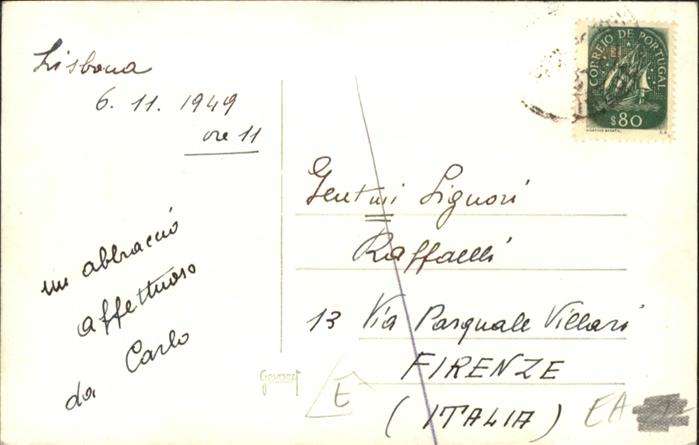 Lisbona
6. 11. 1949
ore 11
un abbraccio
affettuoso
da Carlo
CORREIO DE PORTUGAL
$80
Gent mi Signori
Raffaelli
13 Via Pasquale Villari
FIRENZE
(ITALIA)
E
EA
Gevaert